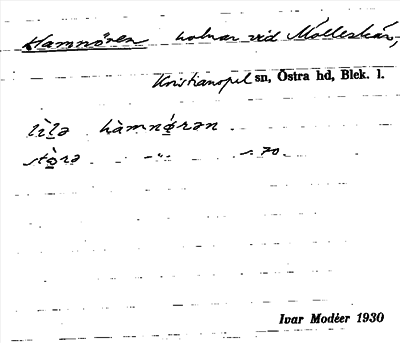 Hamnören holmar vid Molleskär,
Kristianopel sn, Östra hd, Blek. l.
lìlə hàmnǿrən
stòrə –"– s. 70.
Ivar Modéer 1930